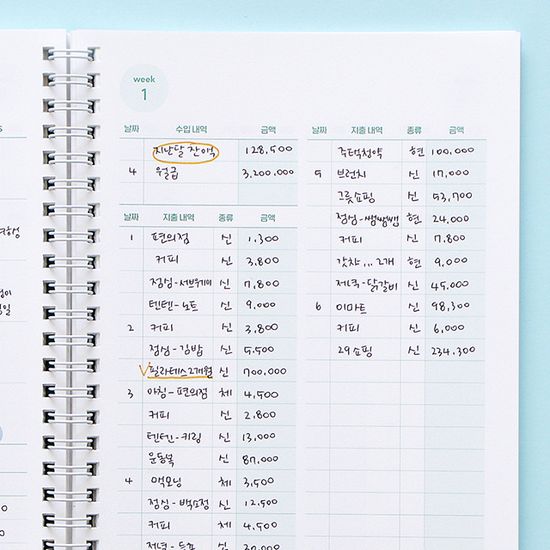 week
1
날짜 수입 내역 금액
지난달 잔액 128,500
4 월급 3,200,000
날짜 지출 내역 종류 금액
1 편의점 신 1,300
커피 신 3,800
점심-서브웨이 신 7,800
텐텐-노트 신 9,000
2 커피 신 3,800
점심-김밥 신 5,500
V 필라테스 2개월 신 700,000
3 아침-편의점 체 4,500
커피 신 2,800
텐텐-키링 신 13,000
운동복 신 87,000
4 맥모닝 체 3,500
점심-백소정 신 12,500
커피 체 4,500
저녁-
날짜 지출 내역 종류 금액
주택청약 현 100,000
5 브런치 신 17,000
그릇쇼핑 신 53,700
점심-쌤쌤쌤 현 24,000
커피 신 7,800
갓챠... 2개 현 9,000
저녁-닭갈비 신 45,000
6 이마트 신 98,300
커피 신 6,000
29쇼핑 신 234,300